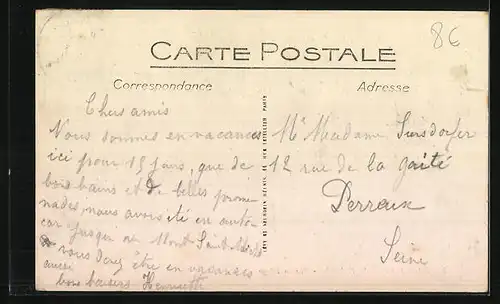 86
CARTE POSTALE
Correspondance
Adresse
Chers amis
Nous sommes en vacances
ici pour 15 jours, que de
bons bains et de belles prome
nades nous avons été en auto
car jusqu'au Mont Saint Michel
vous devez être en vacances
aussi
bons baisers Henriette
Mr Madame
12 rue de la gaité
Perreux
Seine